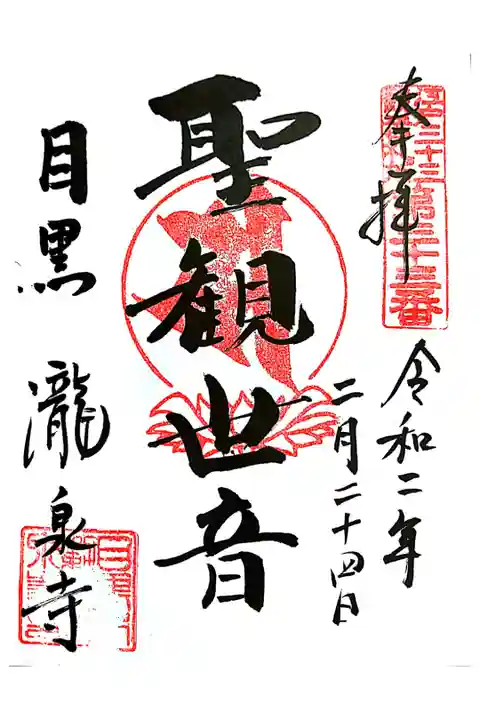 奉拝
江戸三十三
第三十三番
令和二年
二月二十四日
聖観世音
目黒 瀧泉寺